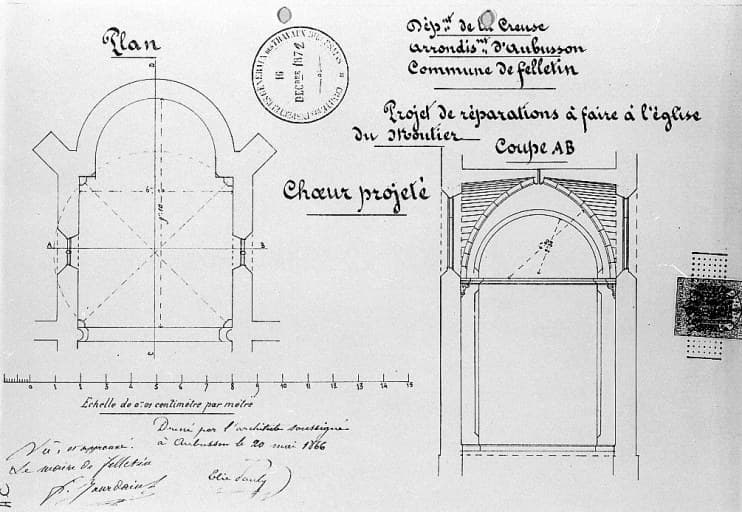 Plan
Dépnt de la Creuse
Arrondismt d'Aubusson
Commune de Felletin
Projet de réparations à faire à l'église
du Moutier
Coupe AB
Chœur projeté
16
DÉCBRE 1872
D
A
B
C
0 1 2 3 4 5 6 7 8 9 10 11 12 13 14 15
Echelle de 0m 01 centimètre par mètre
Dressé par l'architecte soussigné
à Aubusson le 20 mai 1866
Vu et approuvé
Le maire de Felletin